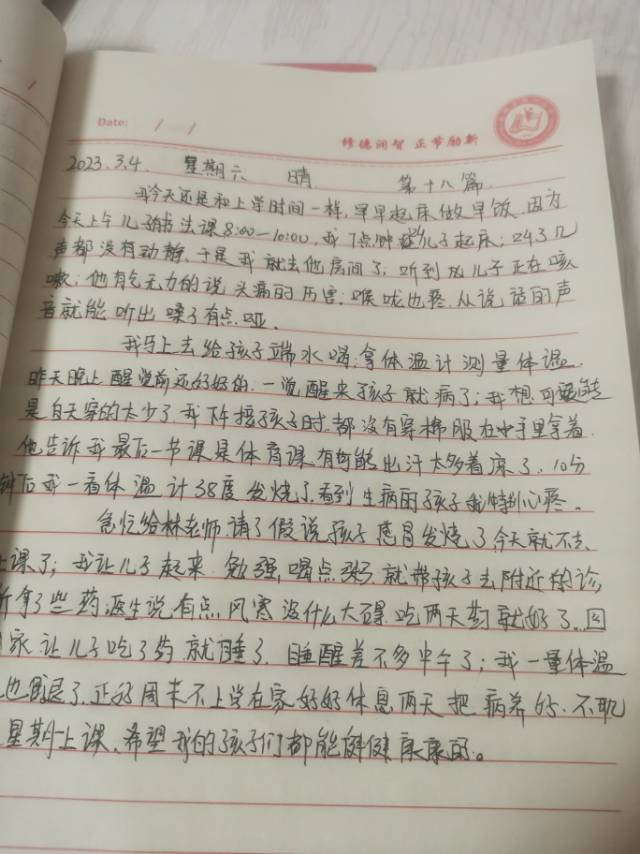 Date: / /
修德润智 正节励新
2023.3.4. 星期六 晴 第十八篇.
我今天还是和上学时间一样,早早起床做早饭.因为
今天上午儿子书法课8:00—10:00,我7点钟儿子起床;叫了几
声都没有动静,于是我就去他房间了,听到儿子正在咳
嗽;他有气无力的说头痛的历害;喉咙也疼.从说话的声
音就能听出嗓子有点哑.
我马上去给孩子端水喝;拿体温计测量体温.
昨天晚上醒觉前还好好的.一觉醒来孩子就病了;我想可能
是白天穿的太少了.我下午接孩子时.都没有穿棉服在手里拿着.
他告诉我最后一节课是体育课.有可能出汗太多着凉了.10分
钟后我一看体温计38度发烧了.看到生病的孩子我特别心疼。
急忙给林老师请了假说孩子感冒发烧了今天就不去
上课了;我让儿子起来勉强喝点粥就带孩子去附近的诊
所拿了些药.医生说有点风寒没什么大碍.吃两天药就好了.回
家让儿子吃了药就睡了.睡醒差不多中午了;我一量体温
也退了.正好周末不上学在家好好休息两天把病养好.不耽
星期一上课.希望我的孩子们都能健康康的。